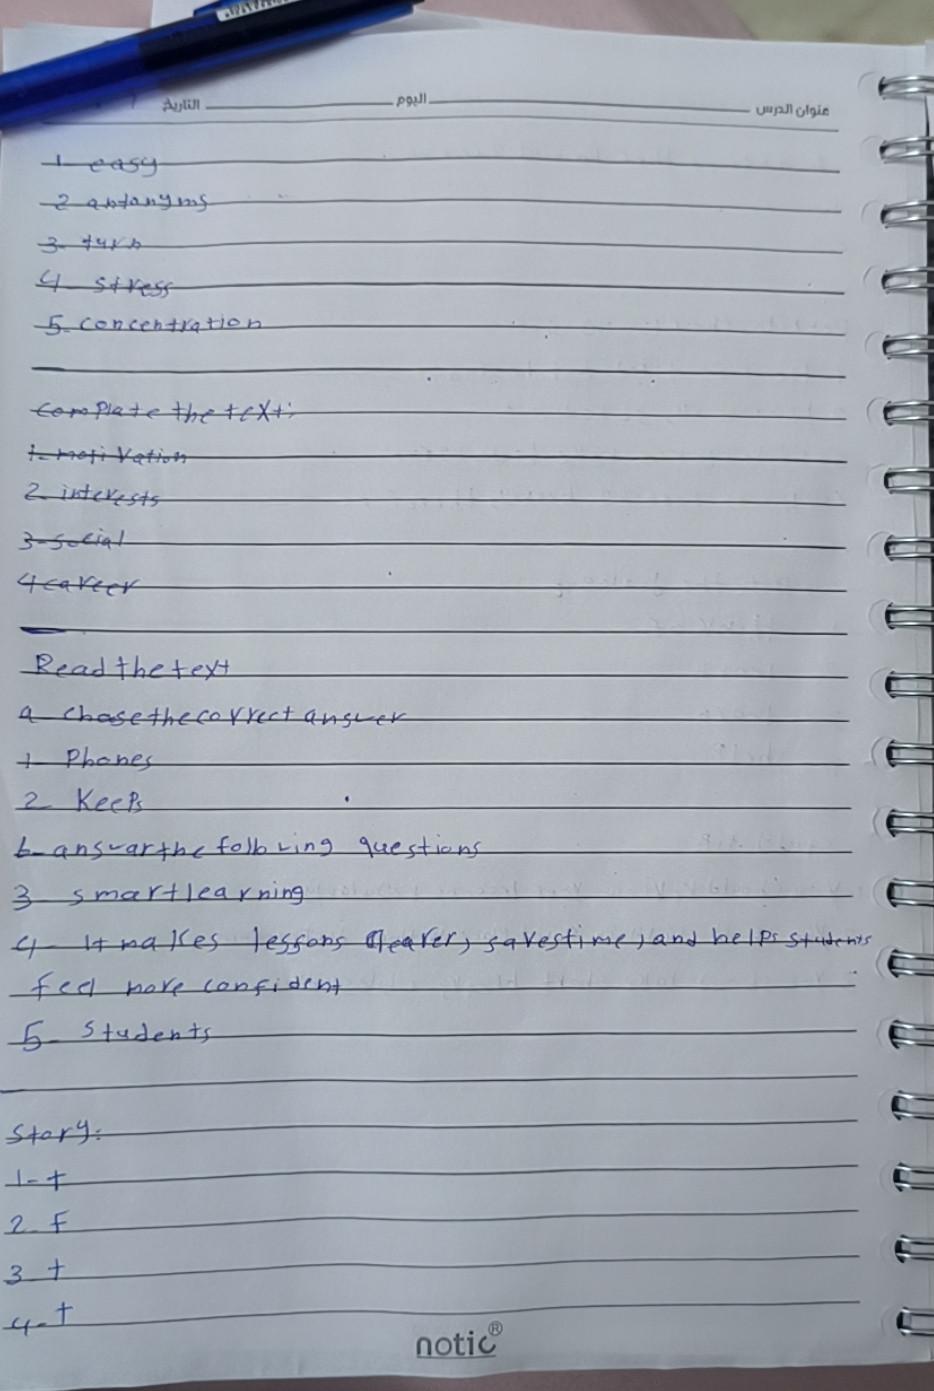 التاريخ اليوم عنوان الدرس
1- easy
2 antonyms
3- turn
4- stress
5- concentration
complate the text:
1- motivation
2. interests
3- social
4 career
Read the text
a- chose the correct answer
1- Phones
2- Keeps
b- answar the following questions
3- smart learning
4- It makes lessons clearer, saves time, and helps students
feel more confident
5- students
Story:
1- t
2. F
3 t
4- t
notic®